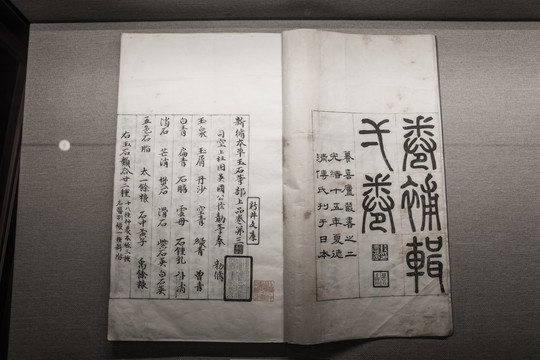 卷補輯
弌卷
籑喜廬叢書之二
光緒十五年夏德
清傅氏刊于日本
新修本草玉石等部上品卷第三
司空上柱國英國公臣勣等奉 勅修
玉泉 玉屑 丹沙 空青 綠青 曾青
白青 扁青 石膽 雲母 石鍾乳 朴消
消石 芒消 礬石 滑石 紫石英 白石英
五色石脂 太一餘粮 石中黃子 禹餘粮
右玉石類合廿二種